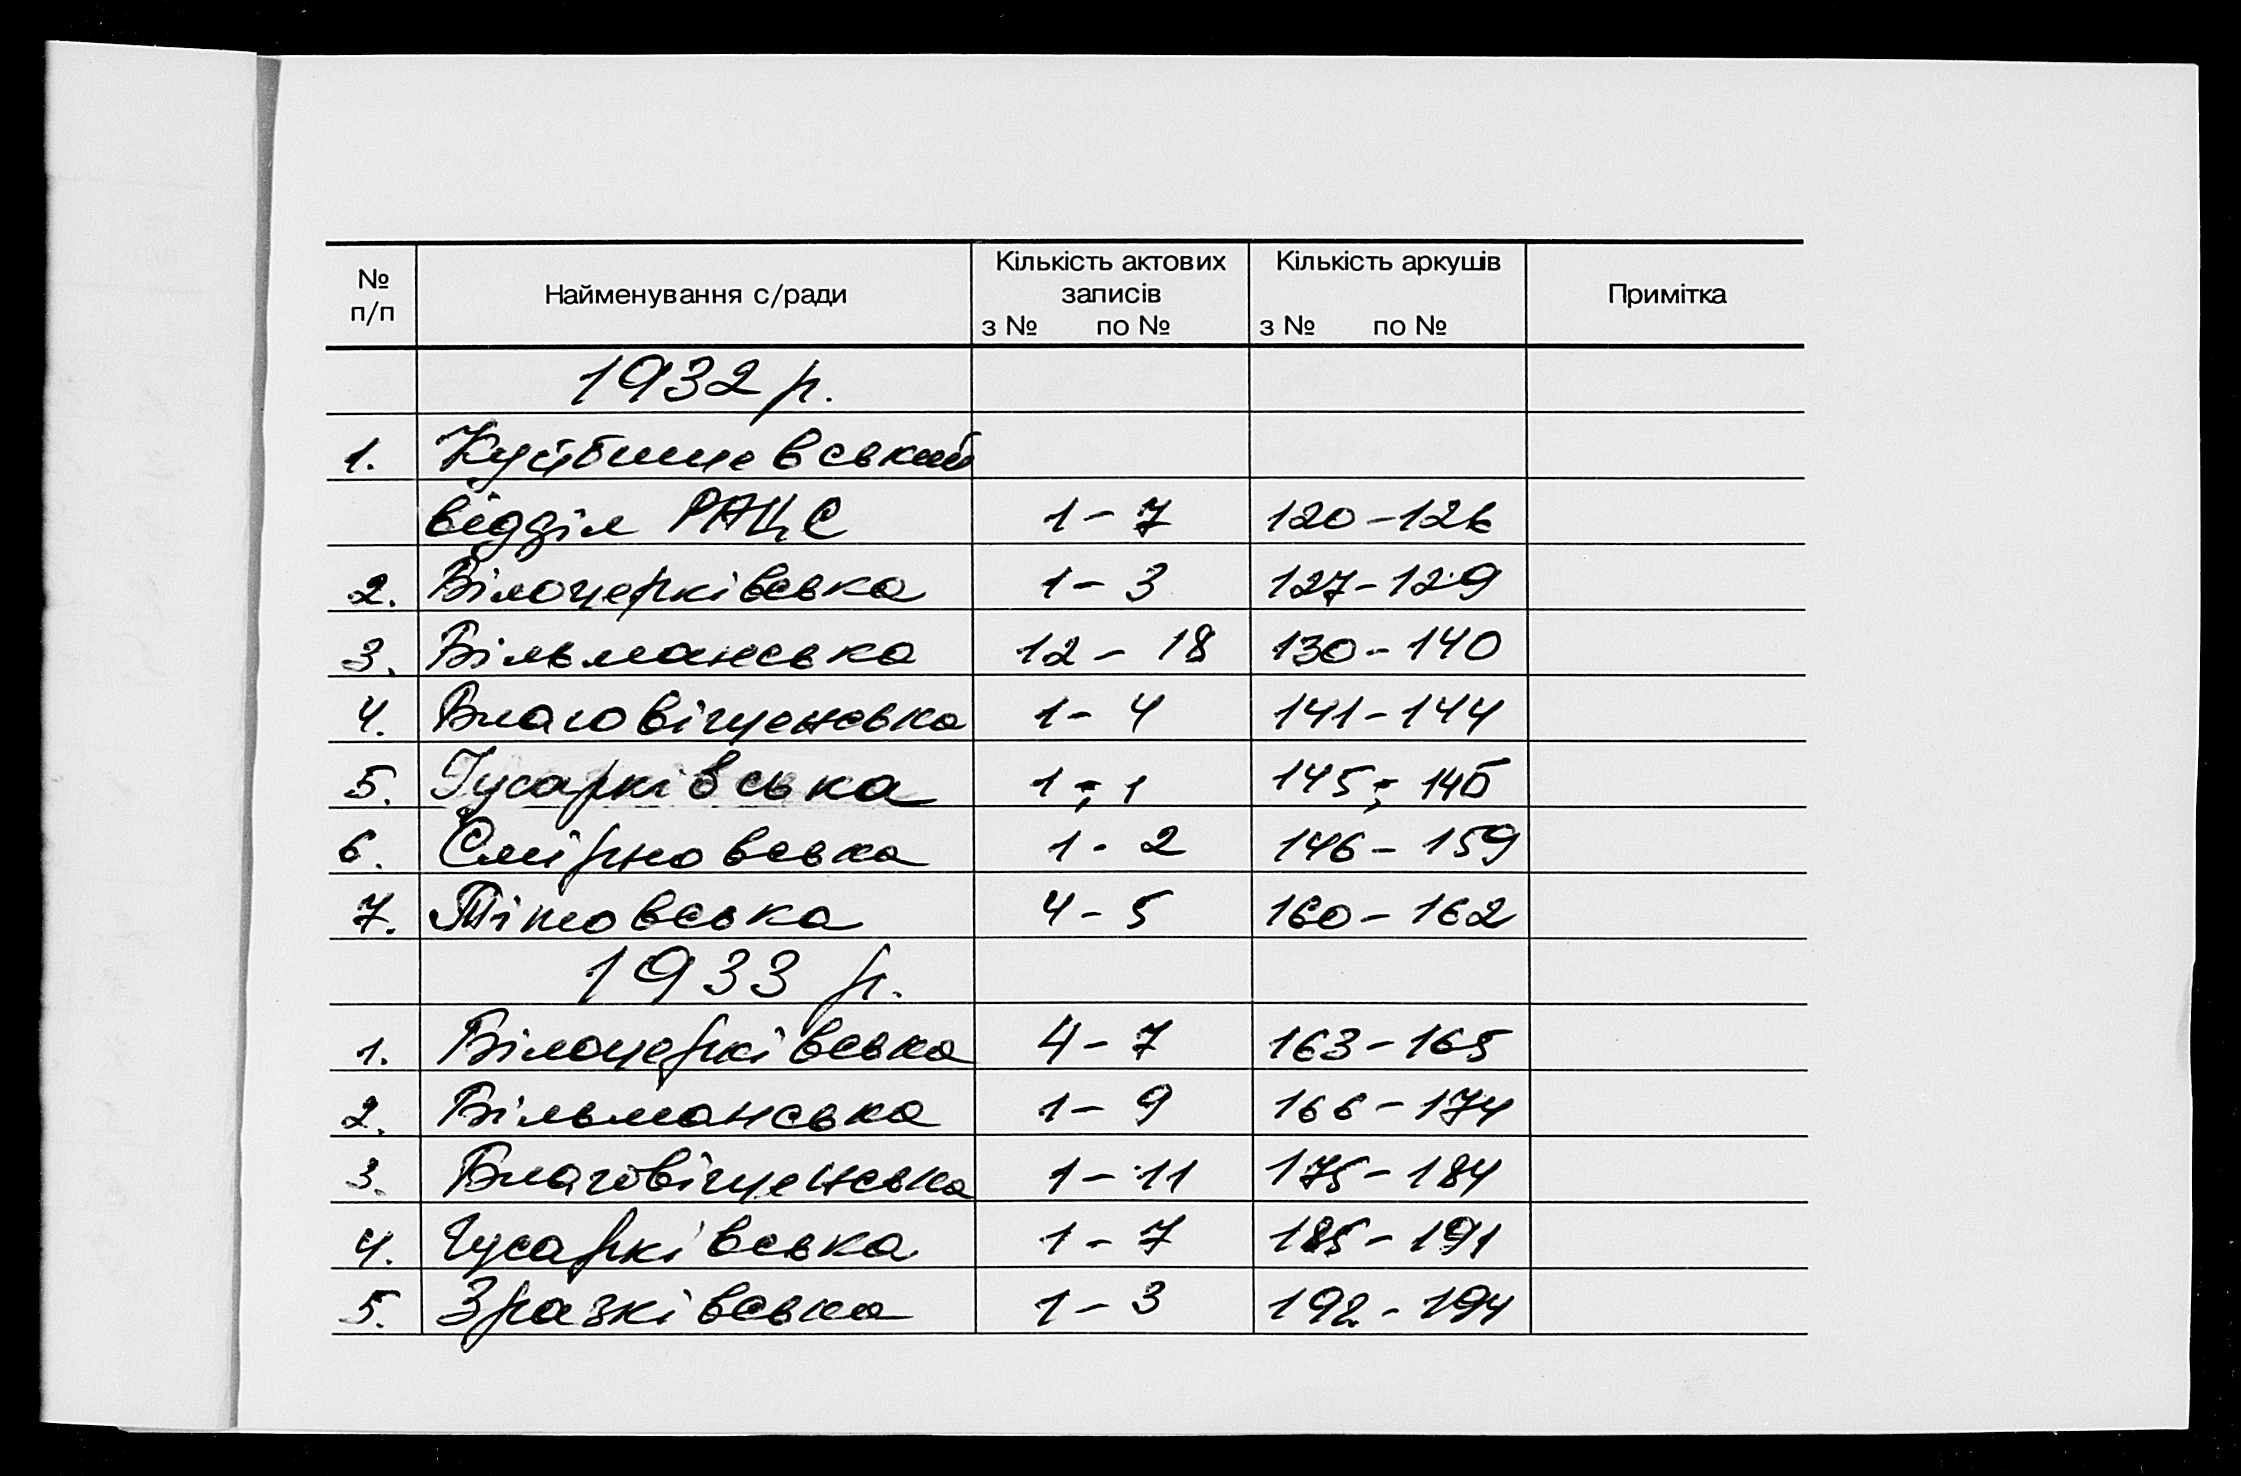 № п/п Найменування с/ради Кількість актових записів з № по № Кількість аркушів з № по № Примітка
1932 р.
1. Куйбишевський
відділ РАЦС 1 - 7 120 - 126
2. Білоцерківська 1 - 3 127 - 129
3. Більманська 12 - 18 130 - 140
4. Благовіщенська 1 - 4 141 - 144
5. Гусарківська 1 -; 1 145 -; 145
6. Смірновська 1 - 2 146 - 159
7. Тітовська 4 - 5 160 - 162
1933 р.
1. Білоцерківська 4 - 7 163 - 165
2. Більманська 1 - 9 166 - 174
3. Благовіщенська 1 - 11 175 - 184
4. Гусарківська 1 - 7 185 - 191
5. Зразківська 1 - 3 192 - 194